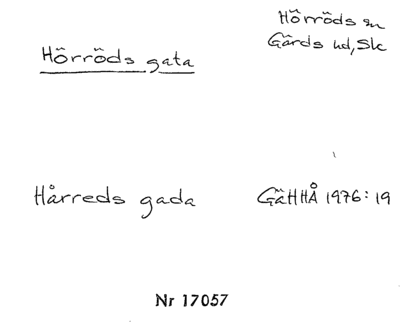 Hörröds gata
Hörröds sn
Gärds hd, Sk
Hårreds gada
GäHHÅ 1976:19
Nr 17057